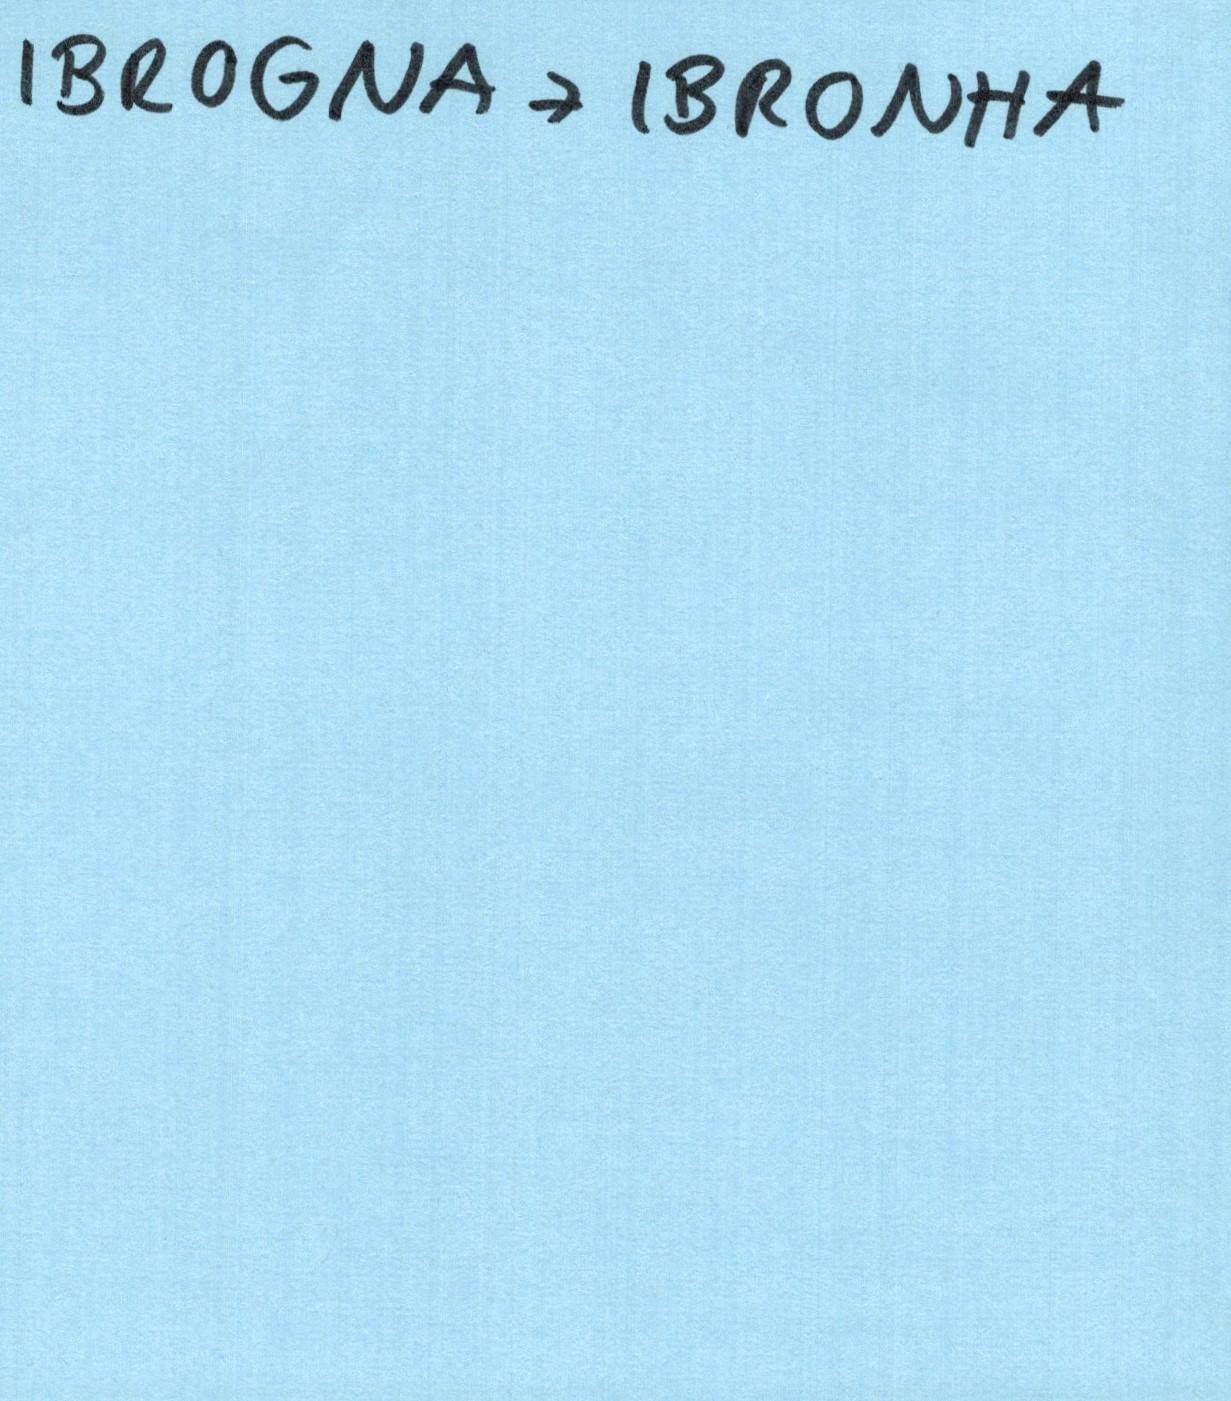 IBROGNA → IBRONHA